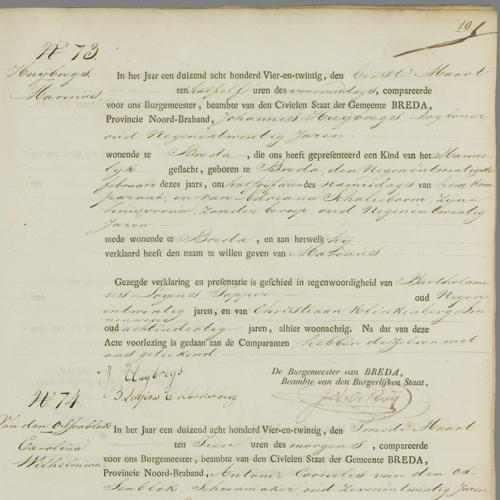 19
N° 73.
Huijbregs
Marinus
In het Jaar een duizend acht honderd Vier-en-twintig, den eersten Maart
ten half elf uren des voormiddags, compareerde
voor ons Burgemeester, beambte van den Civielen Staat der Gemeente BREDA,
Provincie Noord-Braband, Johannes Huijbregs
oud Negenentwintig Jaren
wonende te Breda, die ons heeft gepresenteerd een Kind van het Manne
lijk geslacht, geboren te Breda, den Negenentwintigsten
februarij dezes jaars, om half vijf uren des namiddags van hem Com
parant, en van Adriana Schalieboom, zijne
huisvrouw, zonder beroep oud Negenentwintig
Jaren
mede wonende te Breda, en aan hetwelk hij
verklaard heeft den naam te willen geven van Marinus
Gezegde verklaring en presentatie is geschied in tegenwoordigheid van Bartholome
us oud Negen
entwintig jaren, en van Christiaan Klinkenberg
oud achtendertig jaren, alhier woonachtig. Na dat van deze
Acte voorlezing is gedaan aan de Comparanten hebben dezelven met
ons geteekend
J Huybregs
De Burgemeester van BREDA,
Beambte van den Burgerlijken Staat,
N° 74
Van den Ossenblok
Carolina
Wilhelmina
In het Jaar een duizend acht honderd Vier-en-twintig, den Tweede Maart
ten Tien uren des morgens, compareerde
voor ons Burgemeester, beambte van den Civielen Staat der Gemeente BREDA,
Provincie Noord-Braband, Antonie Cornelis van den Os-
senblok Schoenmaker oud Zevenentwintig Jaren